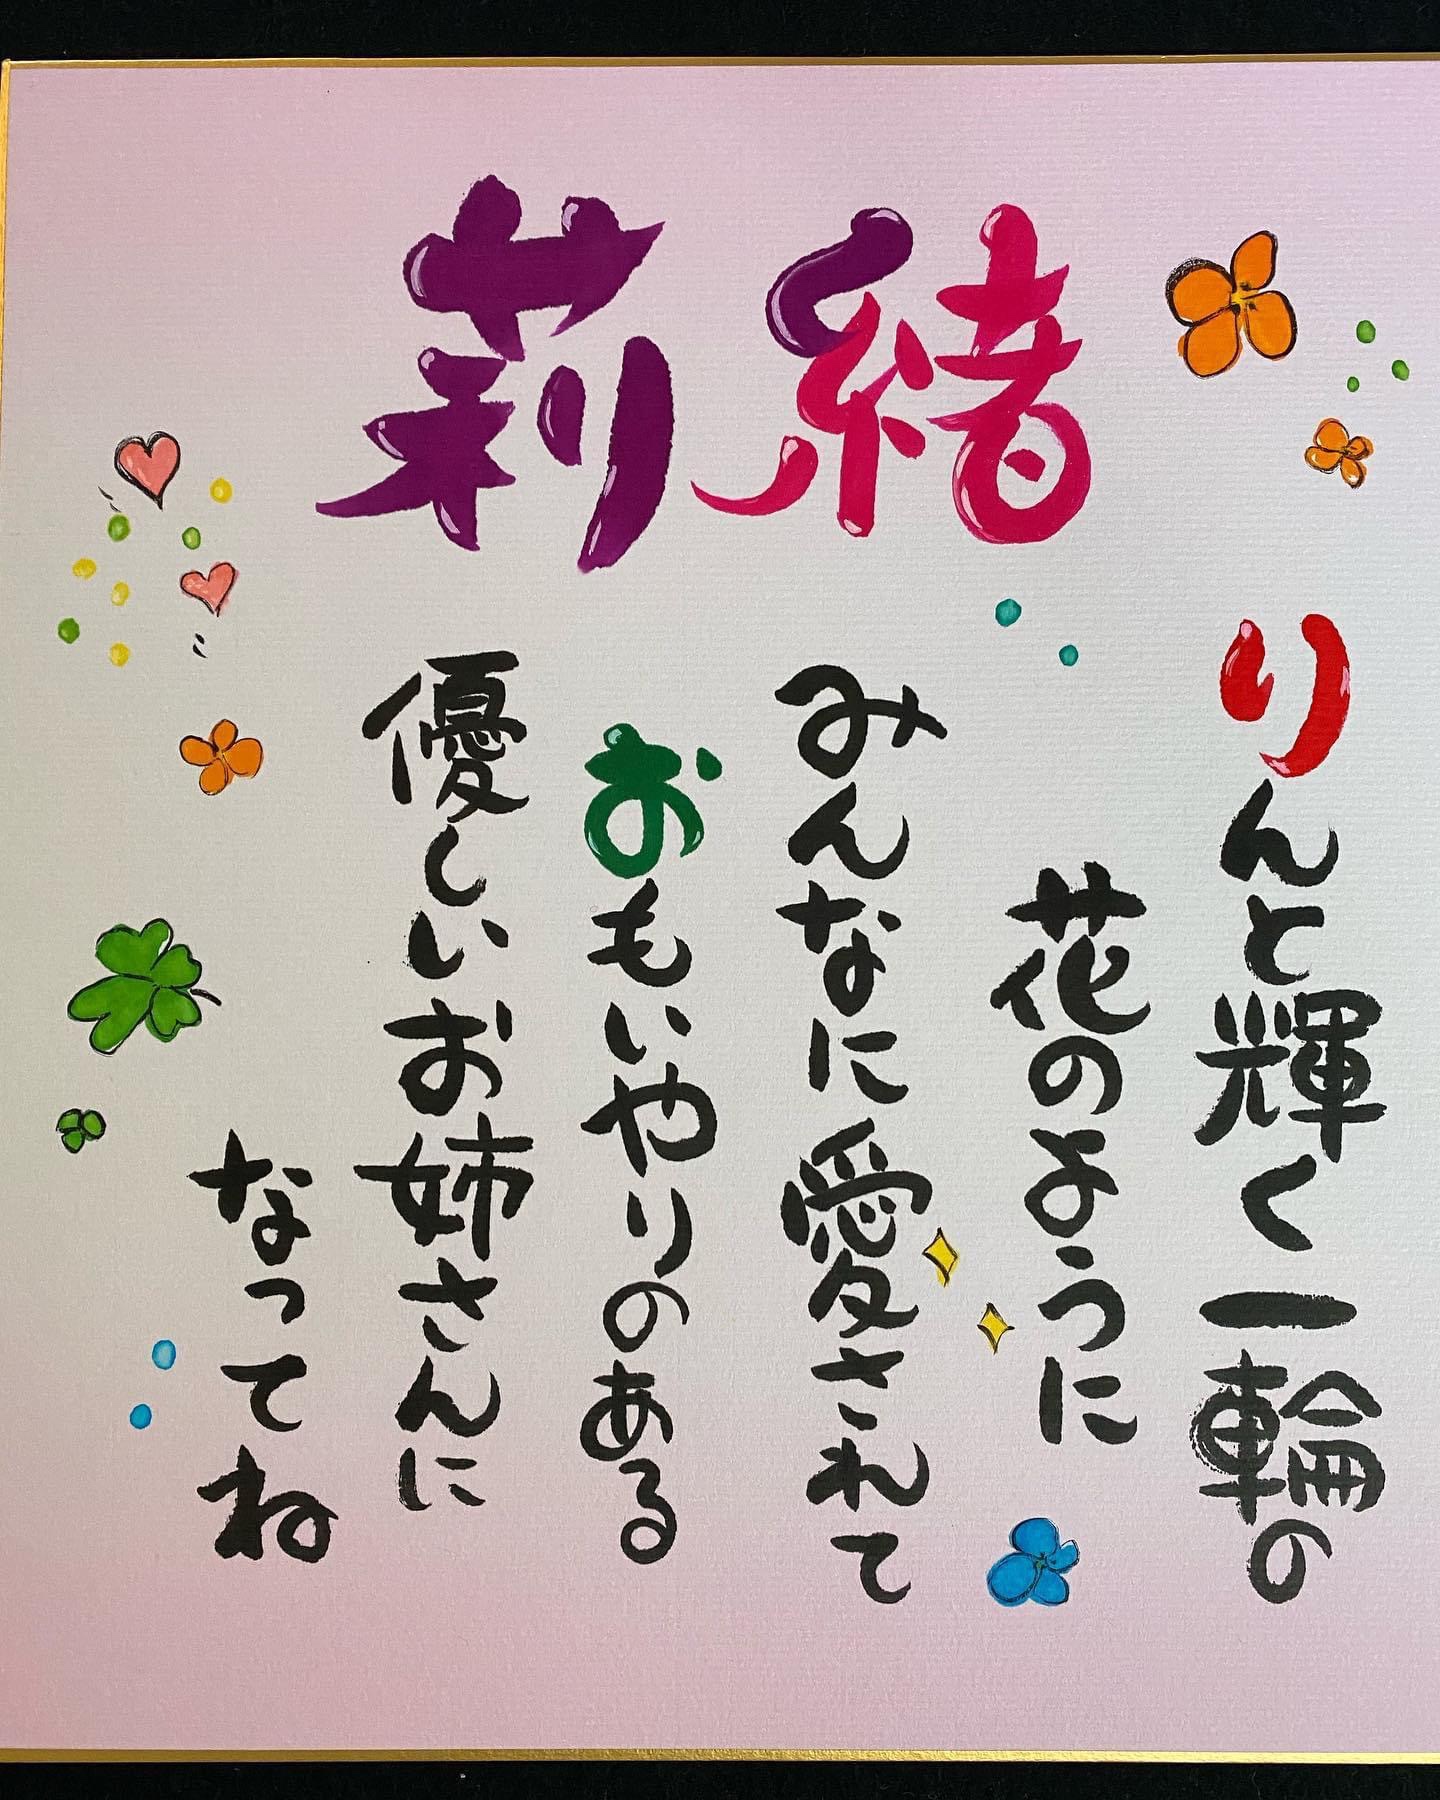 莉緒
りんと輝く一輪の
花のように
みんなに愛されて
おもいやりのある
優しいお姉さんに
なってね